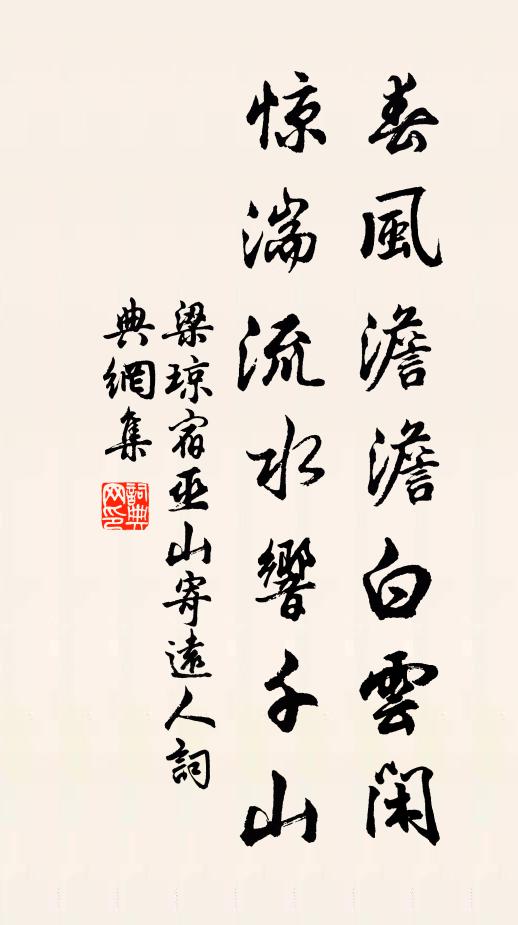 春風澹澹白雲閑
惊湍流水響千山
梁琼宿巫山寄遠人詞
典網集
詞典
网印